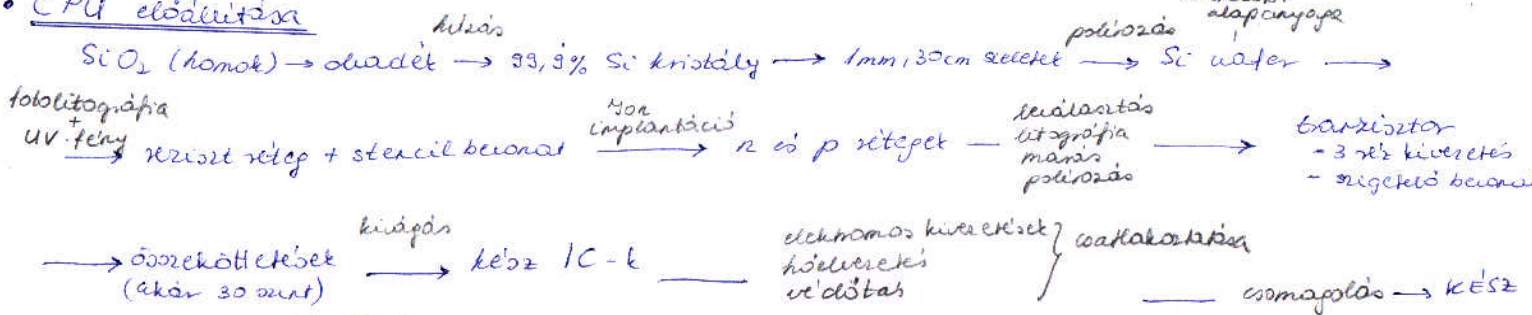 • CPU előállítása
húzás
polírozás
alapanyaga
SiO₂ (homok) → olvadék → 99,9% Si kristály → 1mm, 30cm szeletek → Si wafer →
fotolitográfia
+
UV-fény
→ reziszt réteg + stencil bevonat
Ion
implantáció
→ n és p rétegek
leválasztás
litográfia
marás
polírozás
→ tranzisztor
- 3 réz kivezetés
- szigetelő bevonat
→ összeköttetések
(akár 30 szint)
kivágás
→ kész IC-k
elektromos kivezetések
hőelvezetés
védőtok
} csatlakoztatása
csomagolás → KÉSZ